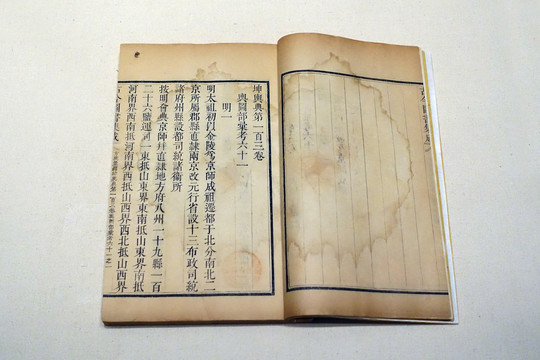 坤輿典第一百三卷
輿圖部彙考六十一
明一
明太祖初以金陵爲京師成祖遷都于北分南北二
京所屬郡縣直隸南京改元行省設十三布政司統
諸府州縣設都司統諸衛所
按明會典京師并直隸地方府八州一十九縣一百
二十六鹽運司一東抵山東界東南抵山東界南抵
河南界西南抵河南界西抵山西界西北抵山西界
古今圖書集成